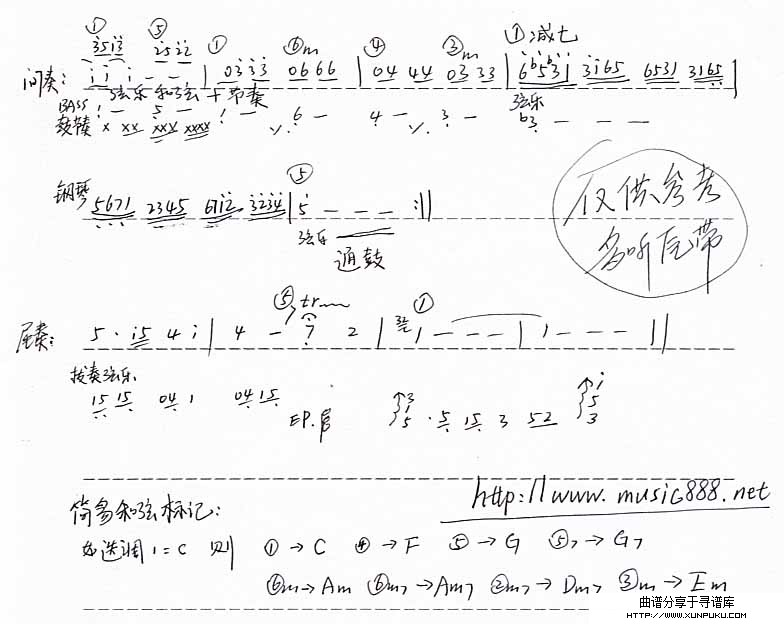 ① ⑤ ① ⑥m ④ ③m ①减七
3513 2512
间奏: i i i - - | 0333 0666 | 04 44 03 33 | 6b5b31 3165 6531 3165 |
弦乐 和弦 + 节奏 弦乐
BASS 1 - 5 - 1 - ٪ 6 - 4 - ٪ 3 - b3 - - -
鼓 x xx xxx xxxx
⑤
钢琴 5671 2345 6712 3234 | 5 - - - :||
弦乐
通鼓
仅供参考
多听原带
⑤7 tr ①
尾奏: 5 · i5 4 i | 4 - 7 2 | 1 - - - | 1 - - - ||
拨奏弦乐
15 15 04 1 04 15 EP. 3 1 5 · 5 15 3 52 i 5 3
http://www.music888.net
简易和弦标记:
如选调1=C 则 ①→C ④→F ⑤→G ⑤7→G7
⑥m→Am ⑥m7→Am7 ②m7→Dm7 ③m→Em
曲谱分享于寻谱库
HTTP://WWW.XUNPUKU.COM